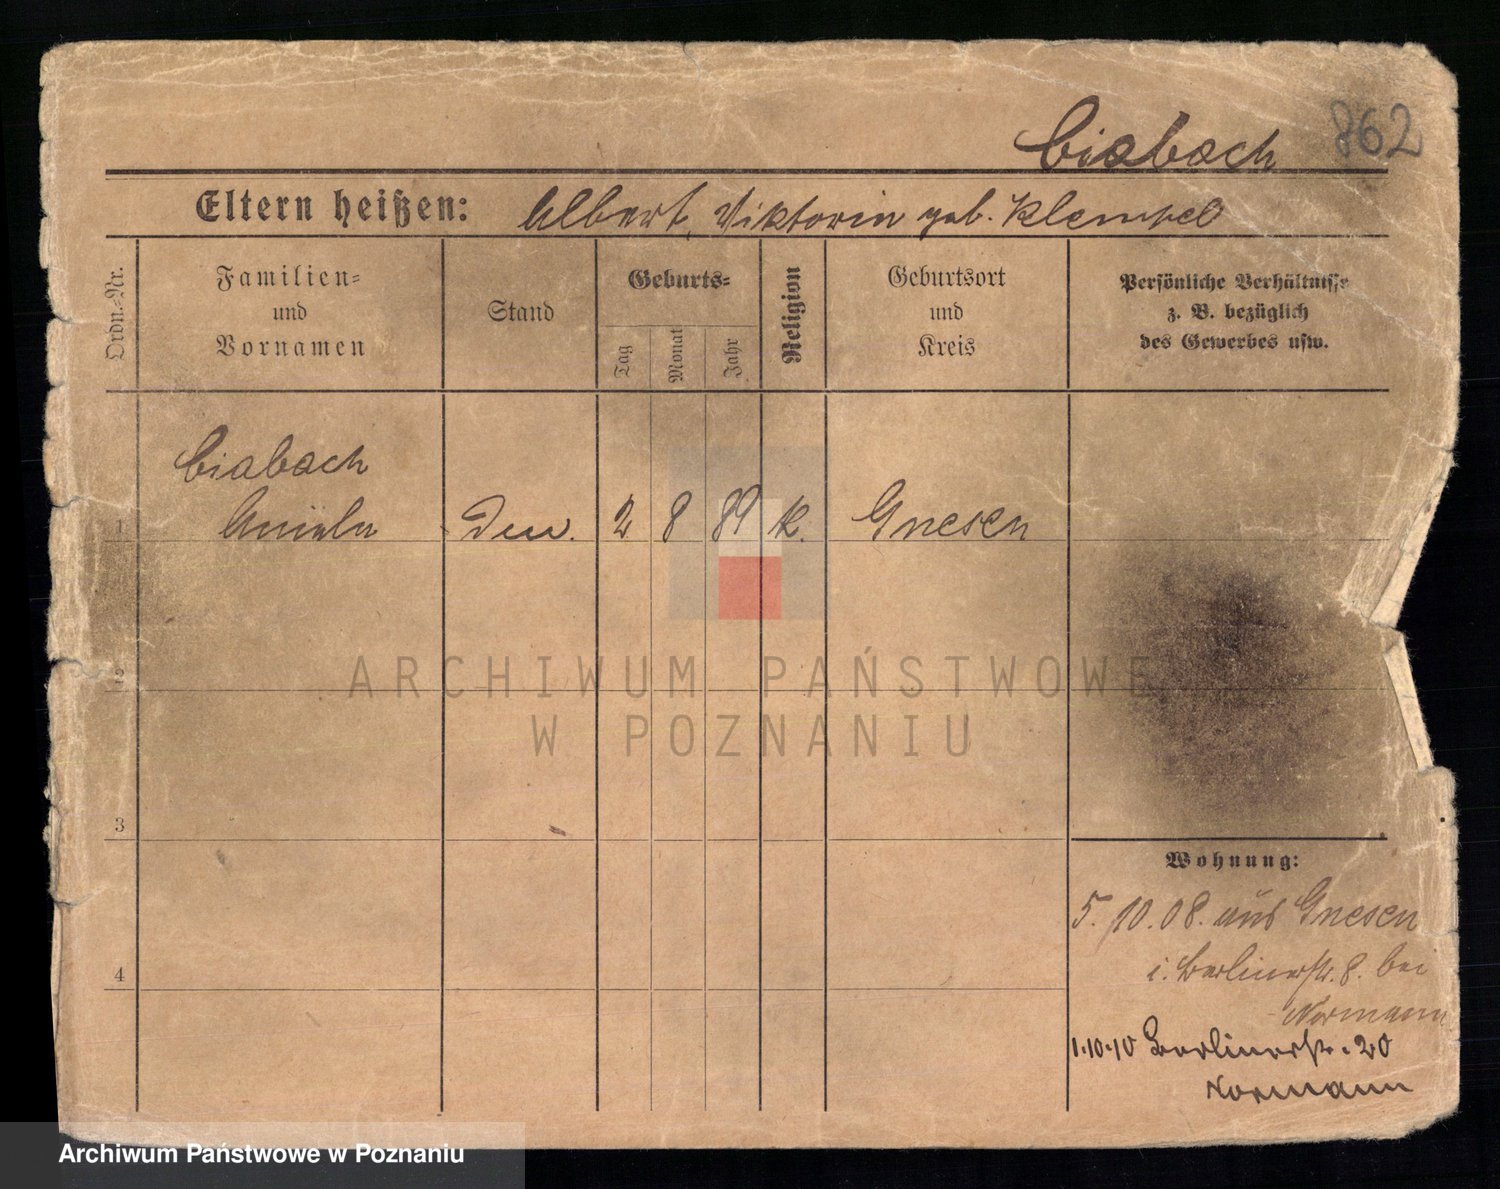 862
Ciabach
Eltern heißen: Albert, Viktoria geb. Klempel
Ordn.-Nr.
Familien-
und
Vornamen
Stand
Geburts-
Tag
Monat
Jahr
Religion
Geburtsort
und
Kreis
Persönliche Verhältnisse
z. B. bezüglich
des Gewerbes usw.
Ciabach
1 Aniela 2 8 89 k. Gnesen
2
3
4
Wohnung:
5.10.08. aus Gnesen
i. Berlinerstr. 8. bei
Normann
1.10.10 Berlinerstr. 20
Normann
ARCHIWUM PAŃSTWOWE
W POZNANIU
Archiwum Państwowe w Poznaniu